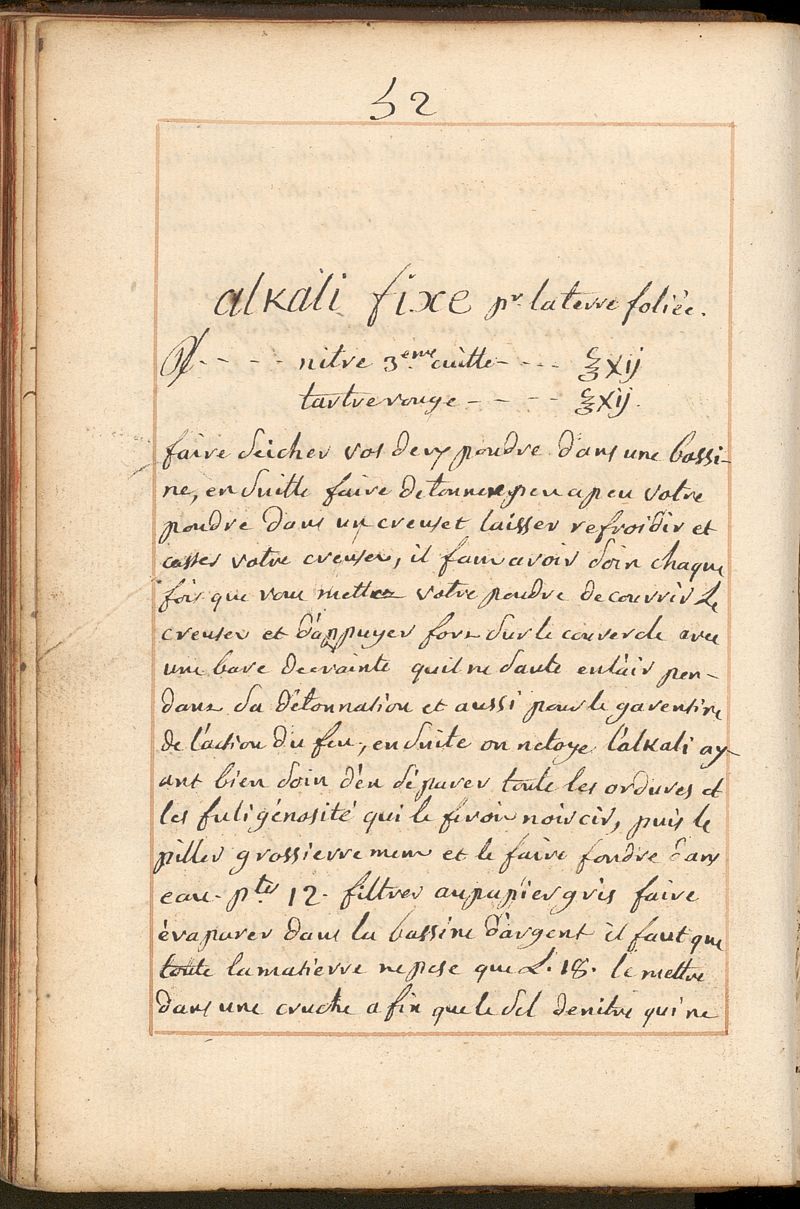 52
alkali fixe pr. la terre foliée.
℞ - - - - nitre 3eme cuitte - - - - ℥xij
tartre rouge - - - - ℥xij.
faire séicher vos deux poudre dans une bassi-
ne, en suitte faire detonner peu a peu votre
poudre dans un creuset laisser refroidir et
casser votre creuset, il faut avoir soin chaque
fois que vous mettez votre poudre de couvrir le
creuset et d'appuyer fort sur le couvercle avec
une bare de crainte qu'il ne saute en l'air pen-
dant sa détonnation et aussi pour le garentire
de l'action du feu, en suite on netoye l'alkali ay-
ant bien soin d'en séparer toute les ordures et
les fuligénosité qui le feroit noircir, puis le
piller grossierrement et le faire fondre dans
eau - ptes 12 - filtrer au papier gris faire
évaparer dans la bassine d'argent il faut que
toute la matierre ne pese que L. 18. le mettre
dans une cruche afin que le sel de nitre qui ne